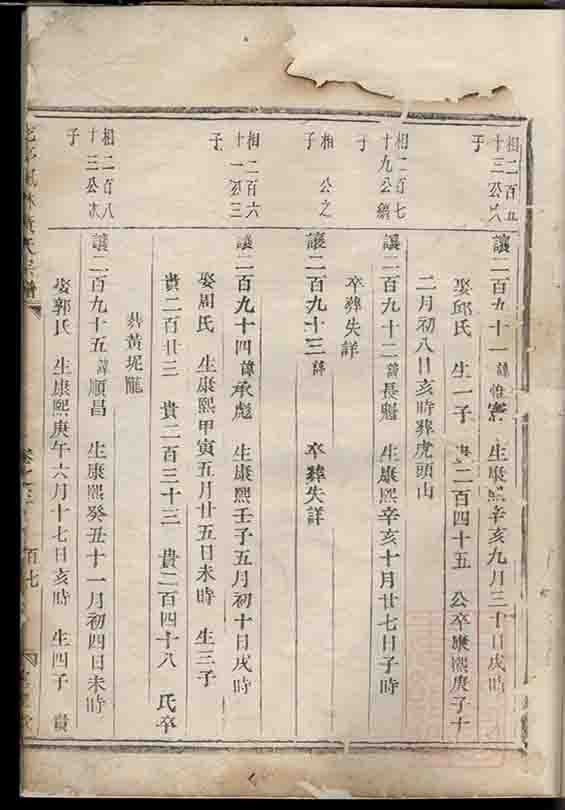 相二百五
十三公次
子
讓二百九十一 諱惟 生康熙辛亥九月三十日戌時
娶邱氏 生一子 貴二百四十五 公卒康熙庚子十
二月初八日亥時葬虎頭山
相二百七
十九公
子
讓二百九十二 諱長魁 生康熙辛亥十月廿七日子時
卒葬失詳
相 公之
子
讓二百九十三 諱 卒葬失詳
相二百六
十一公三
子
讓二百九十四 諱承彪 生康熙壬子五月初十日戌時
娶周氏 生康熙甲寅五月廿五日未時 生三子
貴二百廿三 貴二百三十三 貴二百四十八 氏卒
葬黃坭隴
相二百八
十三公次
子
讓二百九十五 諱順昌 生康熙癸丑十一月初四日未時
娶郭氏 生康熙庚午六月十七日亥時 生四子 貴
黃氏宗譜
百七